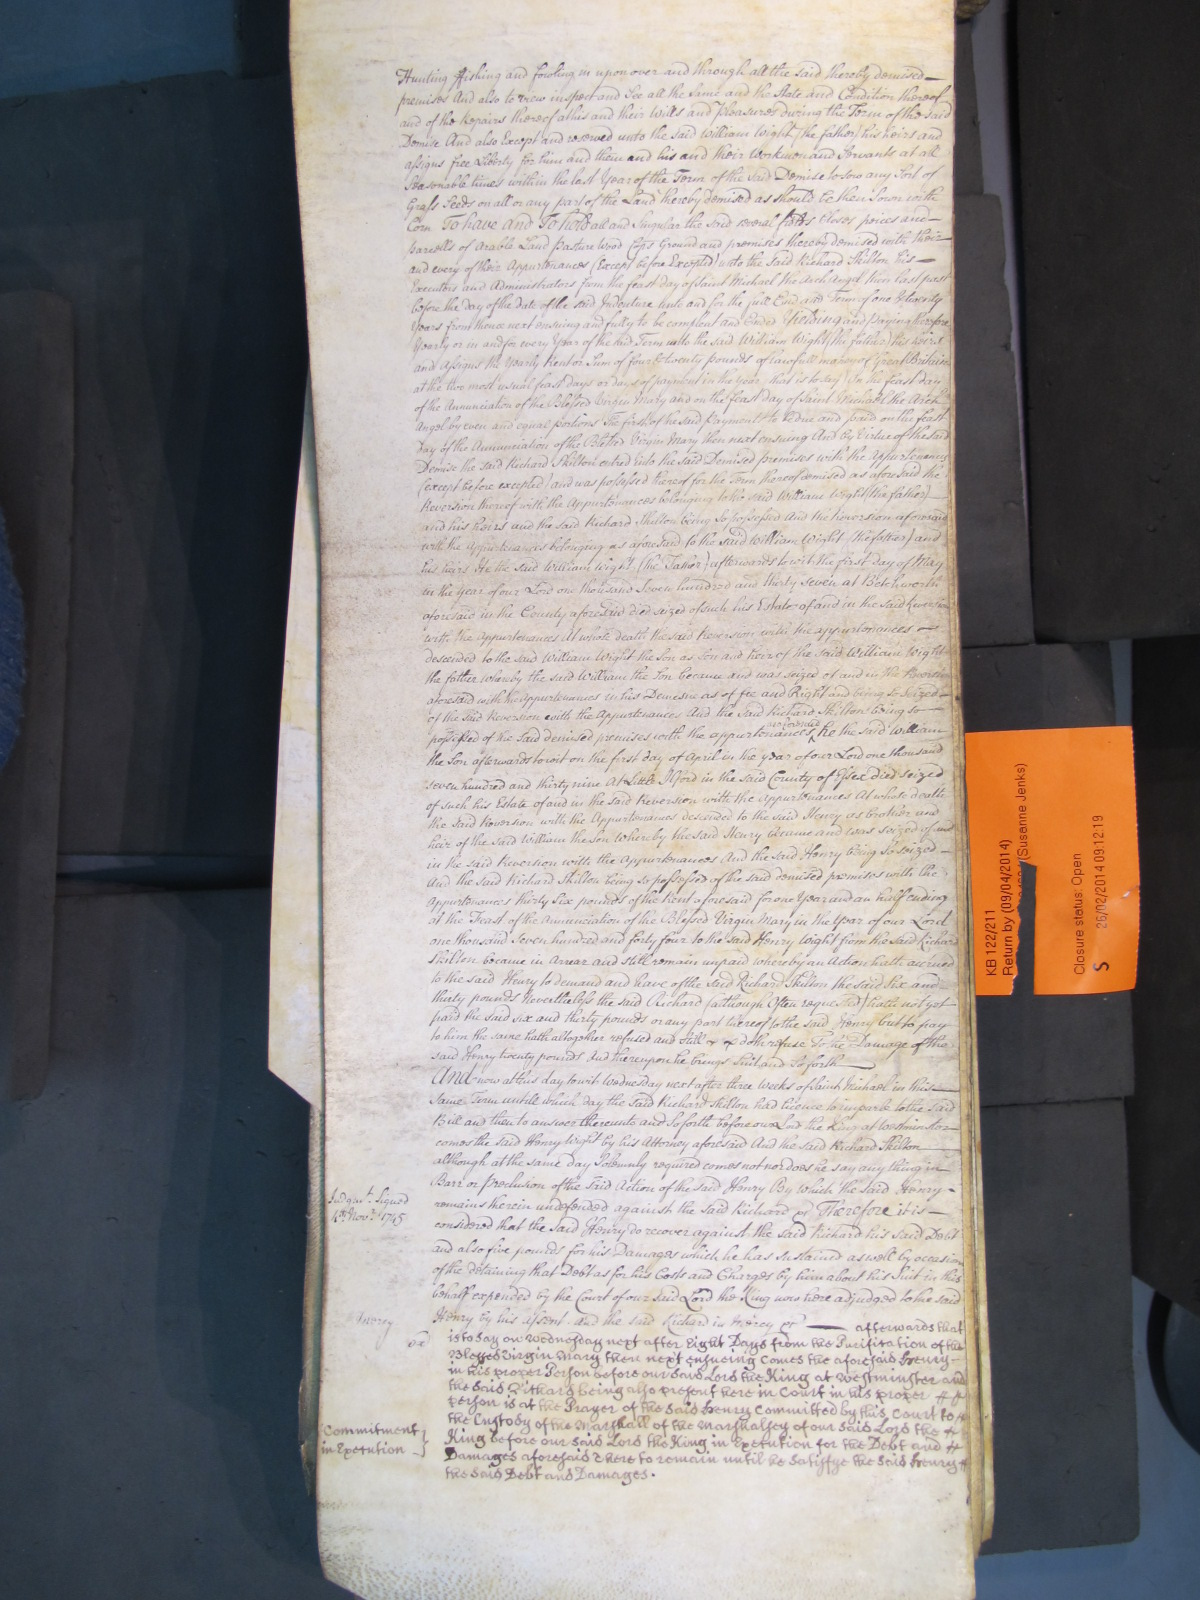 Hunting ffishing and fowling in upon over and through all the said thereby demised
premises And also to view inspect and See all the Same and the State and Condition thereof
and of the Repairs thereof at his and their Wills and Pleasures during the Term of the said
Demise And also Except and reserved unto the said William Wight (the father) his heirs and
assigns free Liberty for him and them and his and their Workmen and Servants at all
Seasonable times within the last Year of the Term of the Said Demise to sow any Sort of
Grass Seeds on all or any part of the Land thereby demised as should be then Sown with
Corn To have and To hold all and Singular the Said several fields Closes peices and
parcells of Arable Land Pasture Wood Ground and premises thereby demised with their
and every of their Appurtenances (Except before Excepted) unto the Said Richard Skilton his
Executors and Administrators from the feast day of Saint Michael the Arch Angel then last past
before the day of the date of the said Indenture unto and for the full End and Term of one & twenty
Years from thence next ensuing and fully to be compleat and Ended Yielding and paying therefore
Yearly or in and for every Year of the said Term unto the said William Wight (the father) his heirs
and Assigns the Yearly Rent or Sum of four & twenty pounds of lawfull money of Great Britain
at the two most usual feast days or days of payment in the year that is to say On the feast day
of the Annunciation of the Blessed Virgin Mary and on the feast day of Saint Michael the Arch
Angel by even and equal portions The first of the said Payments to be due and paid on the feast
Day of the Annunciation of the Blessed Virgin Mary then next ensuing And by Virtue of the Said
Demise the said Richard Skilton entred into the said Demised premises with the Appurtenances
(except before excepted) and was possessed thereof for the Term thereof demised as aforesaid the
Reversion thereof with the Appurtenances belonging to the said William Wight (the father)
and his heirs and the said Richard Skilton being So possessed And the Reversion aforesaid
with the Appurtenances belonging as aforesaid to the said William Wight (the father) and
his heirs He the said William Wight (the Father) afterwards to wit the first day of May
in the year of our Lord one thousand Seven hundred and thirty Seven at Betchworth
aforesaid in the County aforesaid died seized of such his Estate of and in the said Reversion
with the Appurtenances At whose death the said Reversion with the appurtenances
descended to the said William Wight the Son as Son and heir of the Said William Wight
the father whereby the said William the Son became and was seized of and in the Reversion
aforesaid with the Appurtenances in his Demesne as of fee and Right and being so Seized
of the said Reversion with the Appurtenances And the said Richard Skilton being so
possessed of the Said demised premises with the appurtenances as aforesaid he the said William
the Son afterwards to wit on the first day of April in the year of our Lord one thousand
seven hundred and thirty nine At Little Ilford in the said County of Essex died seized
of such his Estate of and in the said Reversion with the Appurtenances At whose death
the Said Reversion with the Appurtenances descended to the said Henry as Brother and
heir of the Said William the Son whereby the said Henry became and was seized of and
in the said Reversion with the Appurtenances And the said Henry being So seized
And the said Richard Skilton being so possessed of the said demised premises with the
Appurtenances thirty Six pounds of the Rent aforesaid for one Year and an half ending
at the Feast of the Annunciation of the Blessed Virgin Mary in the Year of our Lord
one thousand Seven hundred and forty four to the said Henry Wight from the said Richard
Skilton became in Arrear and still remain unpaid whereby an Action hath accrued
to the said Henry to demand and have of the Said Richard Skilton the said Six and
thirty pounds Nevertheless the said Richard (although Often requested) hath not yet
paid the said six and thirty pounds or any part thereof to the said Henry but to pay
to him the same hath altogether refused and still doth refuse To the Damage of the
said Henry twenty pounds And thereupon he brings Suit and So forth
And now at this day to wit Wednesday next after three Weeks of Saint Michael in this
Same Term untill which day the said Richard Skilton had licence to imparle to the said
Bill and then to answer thereunto and So forth before our Lord the King at Westminster
comes the said Henry Wight by his Attorney aforesaid And the said Richard Skilton
although at the same day Solemnly required comes not nor does he say any thing in
Barr or Preclusion of the Said Action of the said Henry By which the said Henry
remains therein undefended against the said Richard Therefore it is
considered that the said Henry do recover against the said Richard his Said Debt
and also five pounds for his Damages which he has Sustained as well by occasion
of the detaining that Debt as for his Costs and Charges by him about his Suit in this
behalf expended by the Court of our Said Lord the King now here adjudged to the said
Henry by his assent and the said Richard in Mercy &c afterwards that
is to Say on Wednesday next after Eight Days from the Purification of the
Blessed Virgin Mary then next ensueing Comes the aforesaid Henry
in his proper Person before our Said Lord the King at Westminster and
the Said Richard being also present here in Court in his proper
Person is at the Prayer of the Said Henry Committed by this Court to
the Custody of the Marshall of the Marshalsey of our Said Lord the
King before our Said Lord the King in Execution for the Debt and
Damages aforesaid there to remain until he Satisfye the Said Henry
the Said Debt and Damages.
Judgmt. Signed
4th Novr. 1745
Mercy
Commitment
in Execution
KB 122/211
Return by (09/04/2014)
(Susanne Jenks)
Closure status: Open
S 26/02/2014 09:12:19